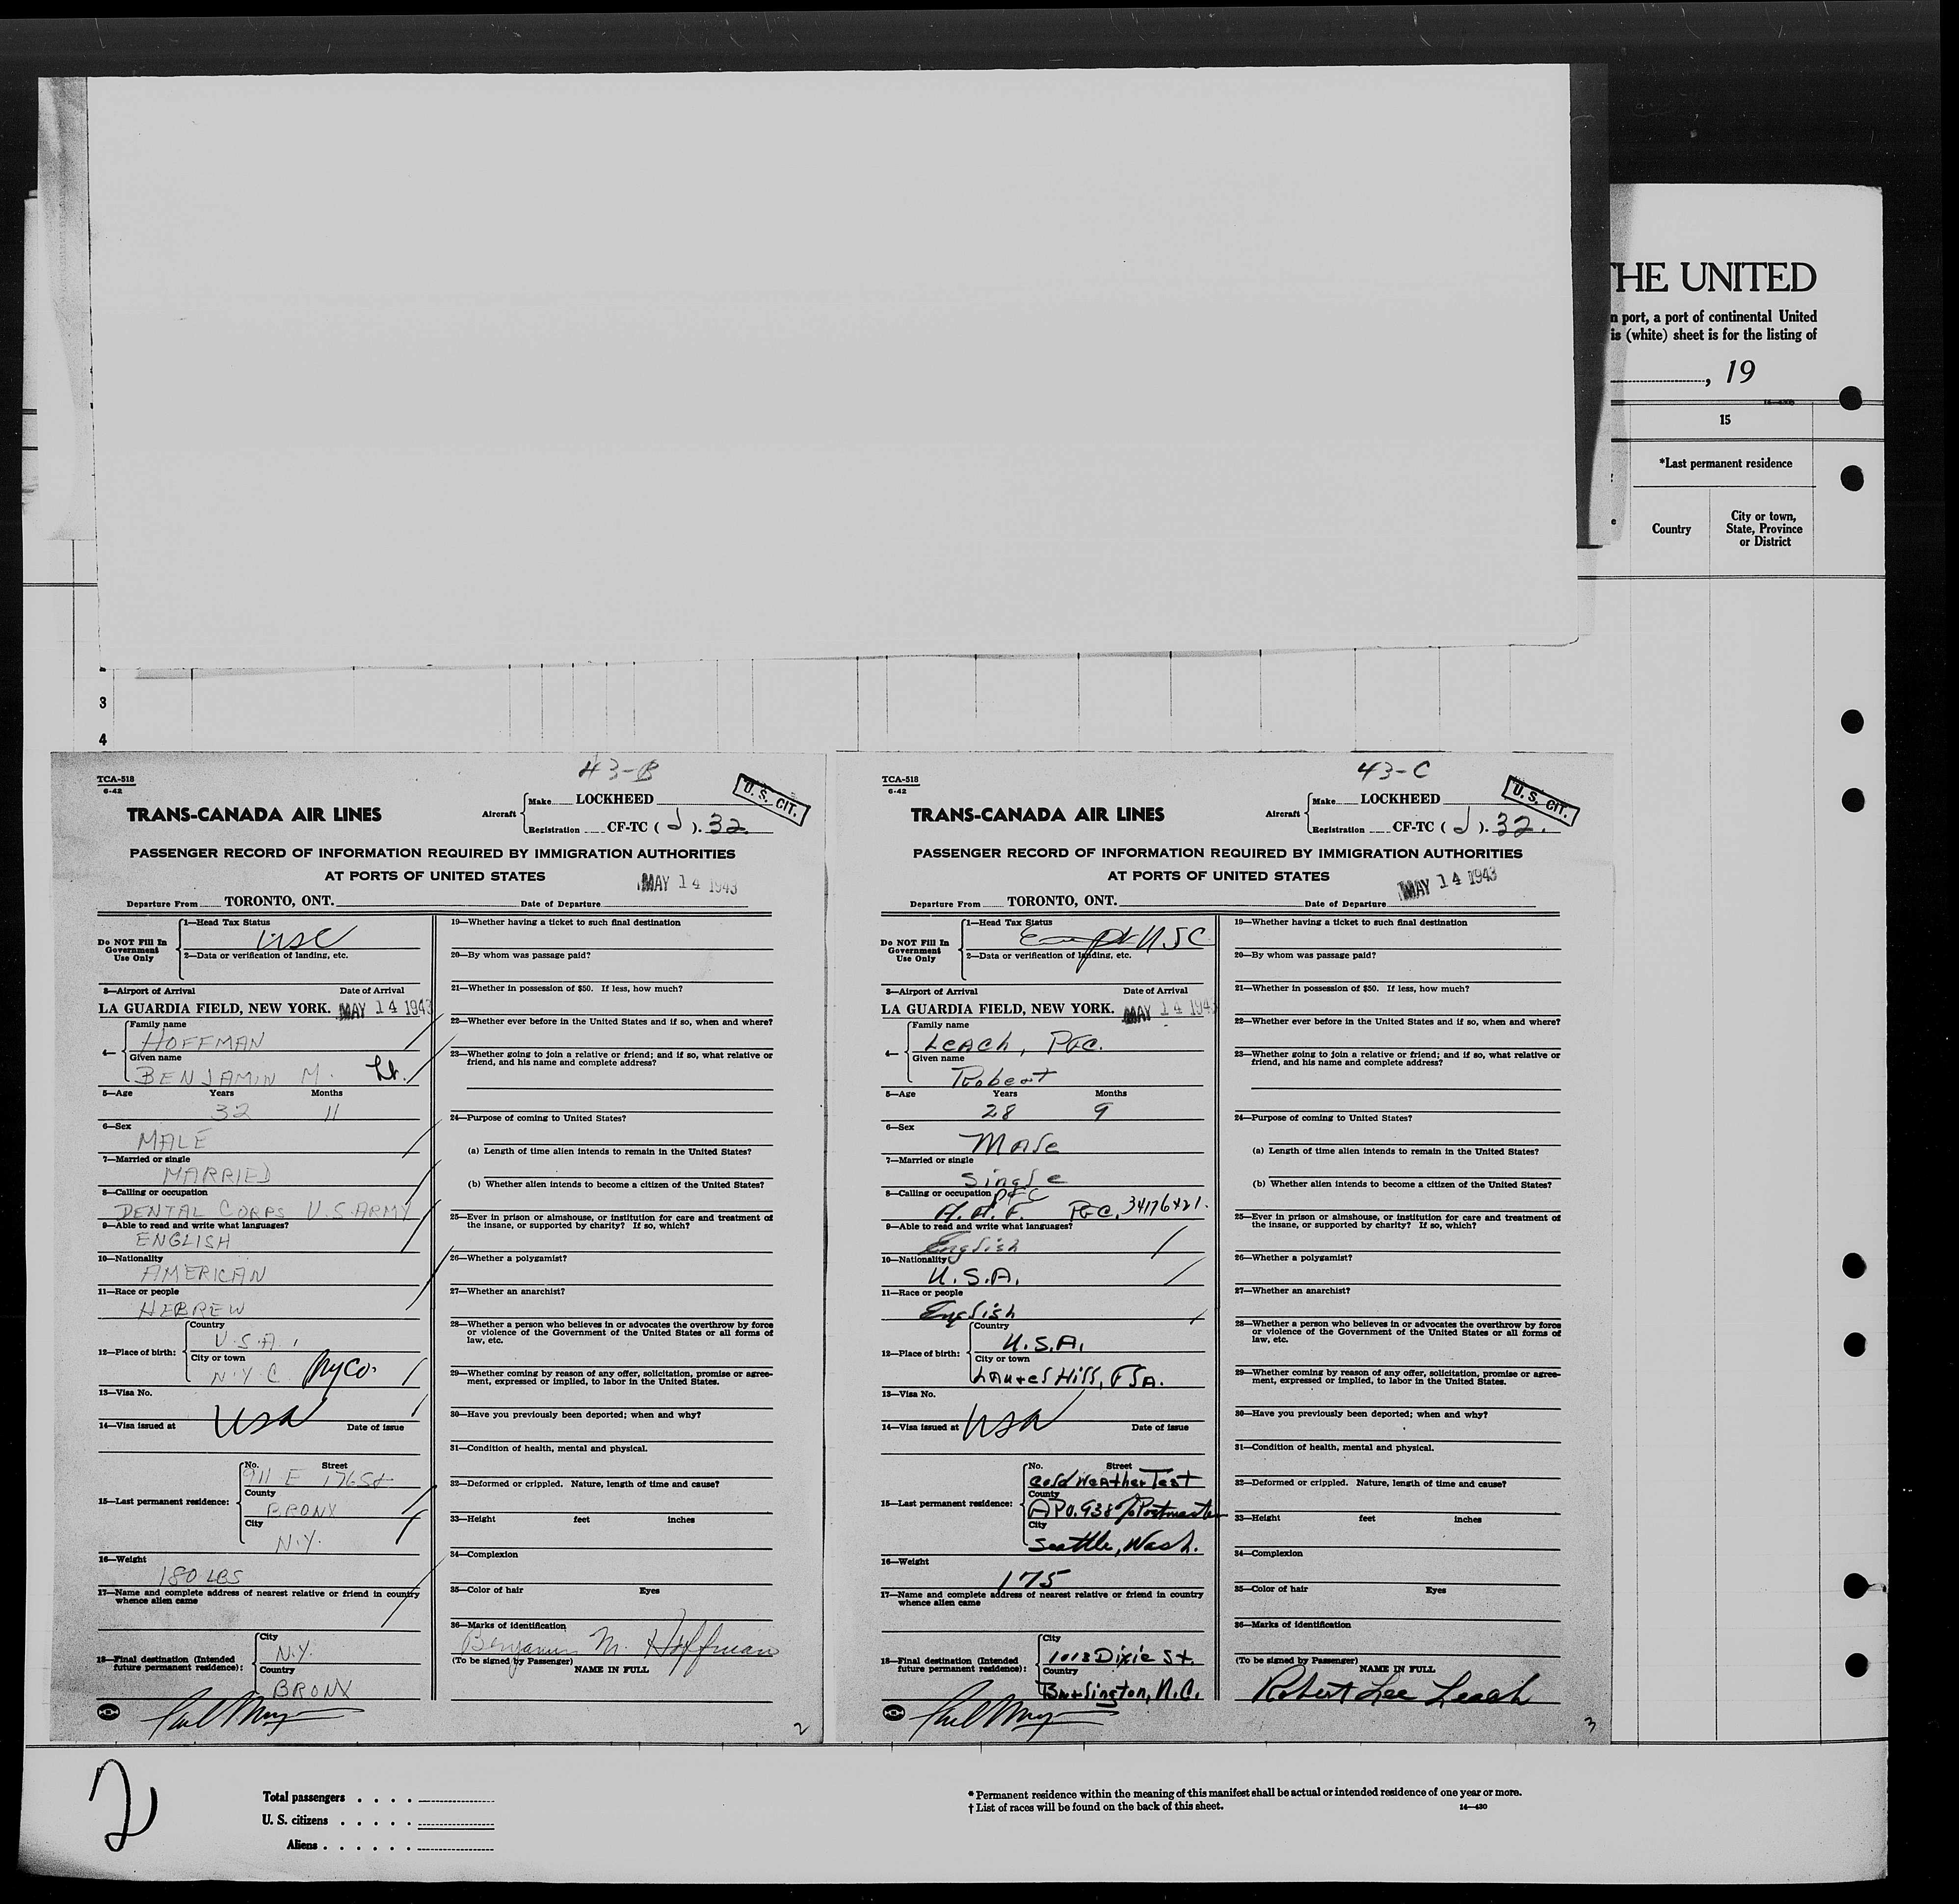 THE UNITED
n port, a port of continental United
is (white) sheet is for the listing of
, 19
15
*Last permanent residence
Country
City or town,
State, Province
or District
3
4
43-B
TCA-518
6-42
TRANS-CANADA AIR LINES
Aircraft
Make LOCKHEED
Registration CF-TC ( J ). 32
U. S. CIT.
PASSENGER RECORD OF INFORMATION REQUIRED BY IMMIGRATION AUTHORITIES
AT PORTS OF UNITED STATES
MAY 14 1943
Departure From TORONTO, ONT. Date of Departure
Do NOT Fill In
Government
Use Only
1—Head Tax Status
USC
2—Data or verification of landing, etc.
3—Airport of Arrival Date of Arrival
LA GUARDIA FIELD, NEW YORK. MAY 14 1943
4—
Family name
HOFFMAN
Given name
BENJAMIN M. Lt.
5—Age Years Months
32 11
6—Sex
MALE
7—Married or single
MARRIED
8—Calling or occupation
DENTAL CORPS U.S. ARMY
9—Able to read and write what languages?
ENGLISH
10—Nationality
AMERICAN
11—Race or people
HEBREW
12—Place of birth:
Country
U.S.A.
City or town
N.Y.C. NYCo.
13—Visa No.
14—Visa issued at USA Date of issue
15—Last permanent residence:
No. Street
911 E 176 St
County
BRONX
City
N.Y.
16—Weight
180 LBS
17—Name and complete address of nearest relative or friend in country
whence alien came
18—Final destination (Intended
future permanent residence):
City
N.Y.
Country
BRONX
19—Whether having a ticket to such final destination
20—By whom was passage paid?
21—Whether in possession of $50. If less, how much?
22—Whether ever before in the United States and if so, when and where?
23—Whether going to join a relative or friend; and if so, what relative or
friend, and his name and complete address?
24—Purpose of coming to United States?
(a) Length of time alien intends to remain in the United States?
(b) Whether alien intends to become a citizen of the United States?
25—Ever in prison or almshouse, or institution for care and treatment of
the insane, or supported by charity? If so, which?
26—Whether a polygamist?
27—Whether an anarchist?
28—Whether a person who believes in or advocates the overthrow by force
or violence of the Government of the United States or all forms of
law, etc.
29—Whether coming by reason of any offer, solicitation, promise or agree-
ment, expressed or implied, to labor in the United States.
30—Have you previously been deported; when and why?
31—Condition of health, mental and physical.
32—Deformed or crippled. Nature, length of time and cause?
33—Height feet inches
34—Complexion
35—Color of hair Eyes
36—Marks of identification
Benjamin M. Hoffman
(To be signed by Passenger)
NAME IN FULL
2
43-C
TCA-518
6-42
TRANS-CANADA AIR LINES
Aircraft
Make LOCKHEED
Registration CF-TC ( J ). 32.
U. S. CIT.
PASSENGER RECORD OF INFORMATION REQUIRED BY IMMIGRATION AUTHORITIES
AT PORTS OF UNITED STATES
MAY 14 1943
Departure From TORONTO, ONT. Date of Departure
Do NOT Fill In
Government
Use Only
1—Head Tax Status
USC
2—Data or verification of landing, etc.
3—Airport of Arrival Date of Arrival
LA GUARDIA FIELD, NEW YORK. MAY 14 194
4—
Family name
Leach, Pfc.
Given name
Robert
5—Age Years Months
28 9
6—Sex
Male
7—Married or single
Single
8—Calling or occupation PFC
Pfc. 34176421.
9—Able to read and write what languages?
English
10—Nationality
U.S.A.
11—Race or people
English
12—Place of birth:
Country
U.S.A.
City or town
Laurel Hill, Fla.
13—Visa No.
14—Visa issued at USA Date of issue
15—Last permanent residence:
No. Street
Cold Weather Test
County
APO. 938 c/o Postmaster
City
Seattle, Wash.
16—Weight
175
17—Name and complete address of nearest relative or friend in country
whence alien came
18—Final destination (Intended
future permanent residence):
City
1018 Dixie St.
Country
Burlington, N.C.
19—Whether having a ticket to such final destination
20—By whom was passage paid?
21—Whether in possession of $50. If less, how much?
22—Whether ever before in the United States and if so, when and where?
23—Whether going to join a relative or friend; and if so, what relative or
friend, and his name and complete address?
24—Purpose of coming to United States?
(a) Length of time alien intends to remain in the United States?
(b) Whether alien intends to become a citizen of the United States?
25—Ever in prison or almshouse, or institution for care and treatment of
the insane, or supported by charity? If so, which?
26—Whether a polygamist?
27—Whether an anarchist?
28—Whether a person who believes in or advocates the overthrow by force
or violence of the Government of the United States or all forms of
law, etc.
29—Whether coming by reason of any offer, solicitation, promise or agree-
ment, expressed or implied, to labor in the United States.
30—Have you previously been deported; when and why?
31—Condition of health, mental and physical.
32—Deformed or crippled. Nature, length of time and cause?
33—Height feet inches
34—Complexion
35—Color of hair Eyes
36—Marks of identification
(To be signed by Passenger)
NAME IN FULL
Robert Lee Leach
3
2
Total passengers
U. S. citizens
Aliens
* Permanent residence within the meaning of this manifest shall be actual or intended residence of one year or more.
† List of races will be found on the back of this sheet.
14—430